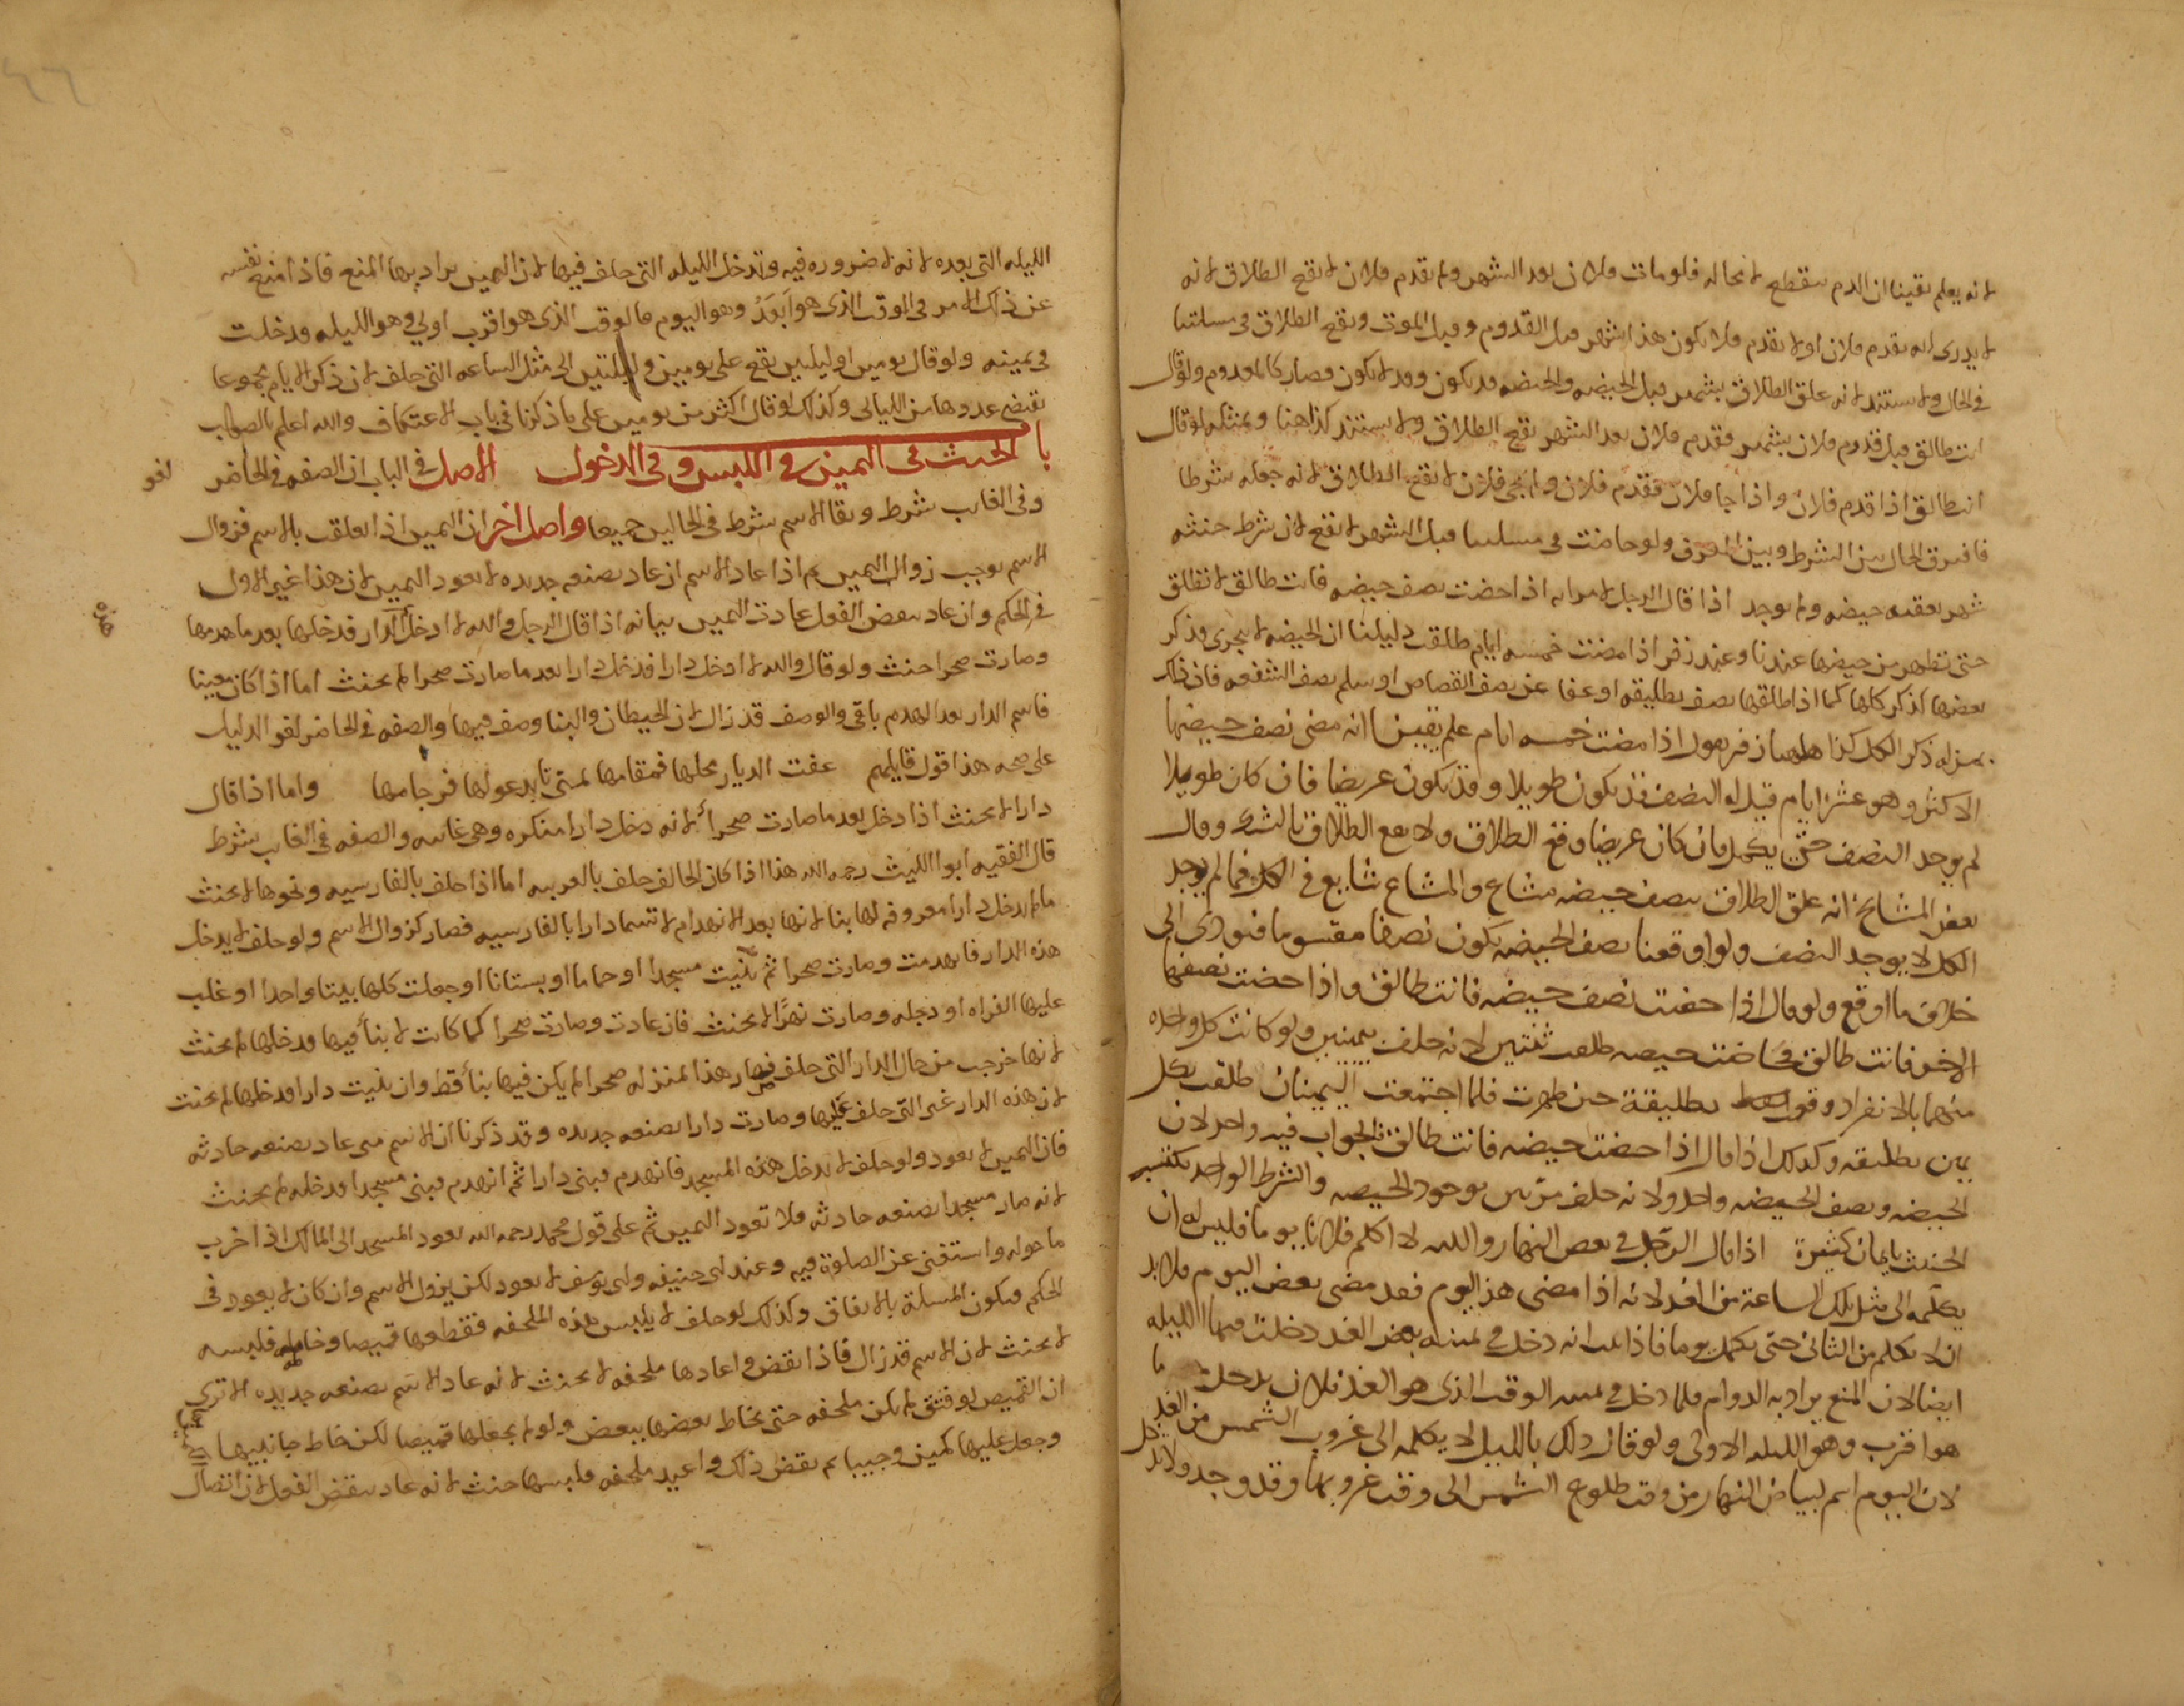 لانه يعلم يقينا ان الدم ينقطع لا محاله فلو مات فلان بعد الشهر ولم يقدم فلان لا يقع الطلاق لانه
لا يدرى انه يقدم فلان او لا يقدم فلا يكون هذا شهر قبل القدوم وقبل الموت ويقع الطلاق فى مسئلتنا
فى الحال ولا يستند لانه علق الطلاق بشهر قبل الحيضه والحيضه قد يكون وقد لا يكون فصار كالمعدوم ولو قال
انت طالق قبل قدوم فلان بشهر فقدم فلان بعد الشهر يقع الطلاق ولا يستند كذا هنا وبمثله لو قال
انت طالق اذا قدم فلان واذا جا فلان فقدم فلان ولم يجى فلان لا يقع الطلاق لانه جعله شرطا
فافترق الحال بين الشرط وبين المعرف ولو حاضت فى مسئلتنا قبل الشهر لا يقع لان شرط حنثه
شهر يعقبه حيضه ولم يوجد اذا قال الرجل لامراته اذا حضت نصف حيضه فانت طالق لا تطلق
حتى تطهر من حيضها عندنا وعند زفر اذا مضت خمسه ايام طلقت دليلنا ان الحيضه لا يتجزى وذكر
بعضها كذكر كلها كما اذا طلقها نصف تطليقه او عفا عن نصف القصاص او سلم نصف الشفعه فان ذلك
بمنزله ذكر الكل كذا هاهنا زفر يقول اذا مضت خمسه ايام علم يقينا انه مضى نصف حيضها
الاكثر وهو عشر ايام قيل له النصف قد يكون طويلا وقد يكون عريضا فان كان طويلا
لم يوجد النصف حتى يكمل فان كان عريضا وقع الطلاق ولا يقع الطلاق بالشك وقال
بعض المشايخ انه علق الطلاق بنصف حيضه مشاع والمشاع شايع فى الكل فما لم يوجد
الكل لا يوجد النصف ولو اوقعنا بنصف الحيضه يكون نصفا مقسوما فيودى الى
خلاف ما اوقع ولو قال اذا حضت نصف حيضه فانت طالق واذا حضت نصفها
الاخر فانت طالق فحاضت حيضه طلقت ثنتين لانه حلف بيمينين ولو كانت كل واحده
منهما بالانفراد وقعت تطليقة حين طهرت فلما اجتمعت اليمينان طلقت بكل
يمين تطليقه وكذلك اذا قال اذا حضت حيضه فانت طالق فالجواب فيه واحد لان
الحيضه ونصف الحيضه واحد ولانه حلف مرتين بوجود الحيضه والشرط الواحد يكفى
الحنث بايمان كثيرة اذا قال الرجل فى بعض النهار والله لا اكلم فلانا يوما فليس له ان
يكلمه الى مثل تلك الساعة من الغد لانه اذا مضى هذا اليوم فقد مضى بعض اليوم فلا بد
ان لا يكلم من الثانى حتى يكمل يوما فاذا ثبت انه دخل فى يمينه بعض الغد دخلت فيما الليله
ايضا لان المنع يراد به الدوام فلما دخل فى يمينه الوقت الذى هو الغد فلان يدخل ما
هو اقرب وهو الليله الاولى ولو قال ذلك بالليل لا يكلمه الى غروب الشمس من الغد
لان اليوم اسم لبياض النهار من وقت طلوع الشمس الى وقت غروبها وقد وجد ولا بد
الليله التى بعده لانه لا ضروره فيه وتدخل الليله التى حلف فيها لان اليمين يراد بها المنع فاذا منع نفسه
عن ذلك الامر فى الوقت الذى هو ابعد وهو اليوم فالوقت الذى هو اقرب اولى وهو الليله فدخلت
فى يمينه ولو قال يومين او ليلتين يقع على يومين وليلتين الى مثل الساعه التى حلف لان ذكر الايام مجموعا
يقتضى عددها من الليالى وكذلك لو قال اكثر من يومين على ما ذكرنا فى باب الاعتكاف والله اعلم بالصواب
باب الحنث فى اليمين فى اللبس و فى الدخول الاصل فى الباب ان الصفه فى الحاضر لغو
وفى الغايب شرط وبقا الاسم شرط فى الحالين جميعا واصل اخر ان اليمين اذا تعلقت بالاسم فزوال
الاسم يوجب زوال اليمين ثم اذا عاد الاسم ان عاد بصنعه جديده لا يعود اليمين لان هذا غير الاول
فى الحكم وان عاد بنقض الفعل عادت اليمين بيانه اذا قال الرجل والله لا ادخل هذه الدار فدخلها بعد ما هدمها
وصارت صحرا حنث ولو قال والله لا ادخل دارا فدخل دارا بعد ما صارت صحرا لم يحنث اما اذا كان معينا
فاسم الدار بعد الهدم باقى والوصف قد زال لان الحيطان والبنا وصف فيها والصفه فى الحاضر لغو الدليل
على صحه هذا قول قايلهم عفت الديار محلها فمقامها بمنى تابد غولها فرجامها واما اذا قال
دارا لا يحنث اذا دخل بعد ما صارت صحرا لانه دخل دارا منكره وهى غايبه والصفه فى الغايب شرط
قال الفقيه ابو الليث رحمه الله هذا اذا كان الحالف حلف بالعربيه اما اذا حلف بالفارسيه ونحوها لا يحنث
ما لم يدخل دارا معروفه لها بنا لانها بعد الانهدام لا تسما دارا بالفارسيه فصار كزوال الاسم ولو حلف لا يدخل
هذه الدار فانهدمت وصارت صحرا ثم بنيت مسجدا او حماما او بستانا او جعلت كلها بيتا واحدا او غلب
عليها الفراه او دجله وصارت نهرا لا يحنث فان عادت وصارت صحرا كما كانت لا بنا فيها فدخلها لم يحنث
لانها خرجت من حال الدار التى حلف فيها فصار هذا بمنزله صحرا لم يكن فيها بنا قط وان بنيت دارا فدخلها لم يحنث
لان هذه الدار غير التى حلف عليها وصارت دارا بصنعه جديده وقد ذكرنا ان الاسم متى عاد بصنعه حادثه
فان اليمين لا يعود ولو حلف لا يدخل هذه المسجد فانهدم فبنى دارا ثم انهدم فبنى مسجدا فدخله لم يحنث
لانه صار مسجدا بصنعه حادثه فلا تعود اليمين ثم على قول محمد رحمه الله يعود المسجد الى المالك اذا خرب
ما حوله واستغنى عن الصلوة فيه وعند ابى حنيفه وابى يوسف لا يعود لكن يزول الاسم وان كان لا يعود فى
الحكم فيكون المسئلة بالاتفاق وكذلك لو حلف لا يلبس هذه الملحفه فقطعها قميصا وخاطه فلبسه
لا يحنث لان الاسم قد زال فاذا نقض واعادها ملحفه لا يحنث لانه عاد الاسم بصنعه جديده الا ترى
ان القميص لو فتق لم يكن ملحفه حتى يخاط بعضها ببعض ولو لم يجعلها قميصا لكن خاط جانبيها
وجعل عليها كمين وجيبا ثم نقض ذلك واعيد ملحفه فلبسها حنث لانه عاد بنقض الفعل لان اتصال